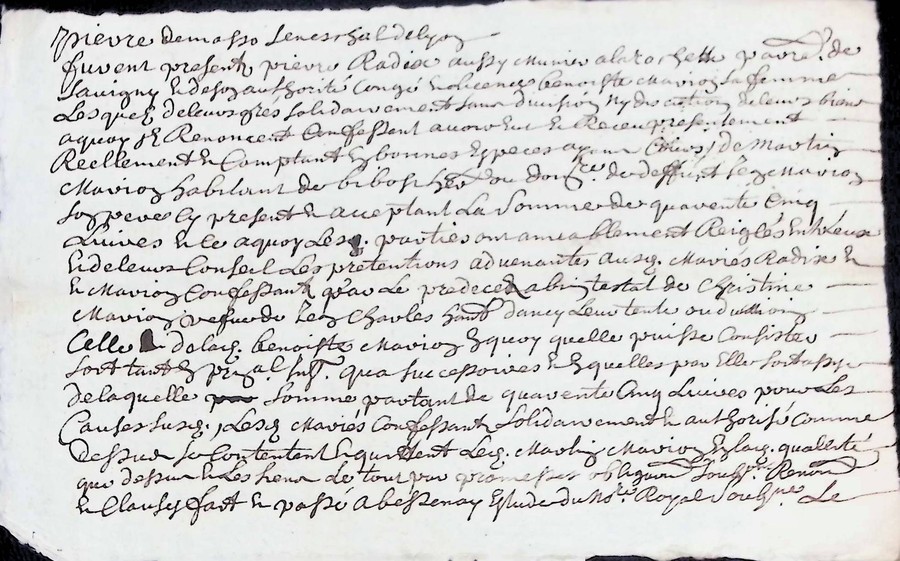 pierre demasso seneschal de lyon
furent presents pierre Radix aussy munier a la rochette parre. de
Savigny et de son authorité congé et licence benoiste Marion sa femme
Lesquels de leurs grés solidairement sans division ny discution de leurs biens
a quoy ils Renoncent Confessent avoir eu et Receu presentement
Reellement et Comptant en bonnes especes ayant Cours, de Martin
Marion habitant de bibost de deffunt Marion
son pere Cy present et acceptant La Somme de quarente Cinq
Livres et Ce a quoy Lesq. parties ont amiablement Reiglés entre eux
et de leurs Conseil Les pretentions advenantes ausq. Mariés Radix et
et Marion Confessants par Le predecedz abintestat de Christine
Marion vefve de Charles dancy Leur tente ou du moins
Celle de lad. benoiste Marion En quoy quelle puisse Consister
soit tant en pnal. qua successoires et Esquelles par Elle soit
de laquelle somme partant de quarente Cinq Livres pour Les
Causes susd., Lesq. Mariés Confessants solidairement et authorisé comme
dessus se Contentent et quittent Led. Martin Marion En lad. quallité
que dessus et Les siens Le tout par promesses obligaon Renon
et Clauses fait et passé a bessenay Estude du Nore. Royal Soubzne. Le